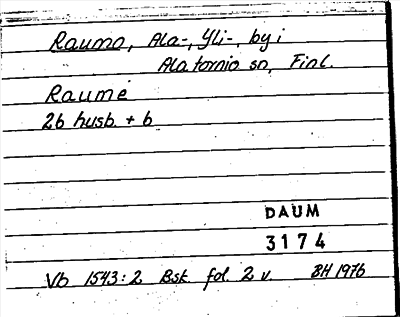 Raumo, Ala-, Yli-, by i
Alatornio sn, Finl.
Raumé
26 husb. + b
DAUM
3174
Vb 1543:2 Bsk. fol. 2 v. BH 1976